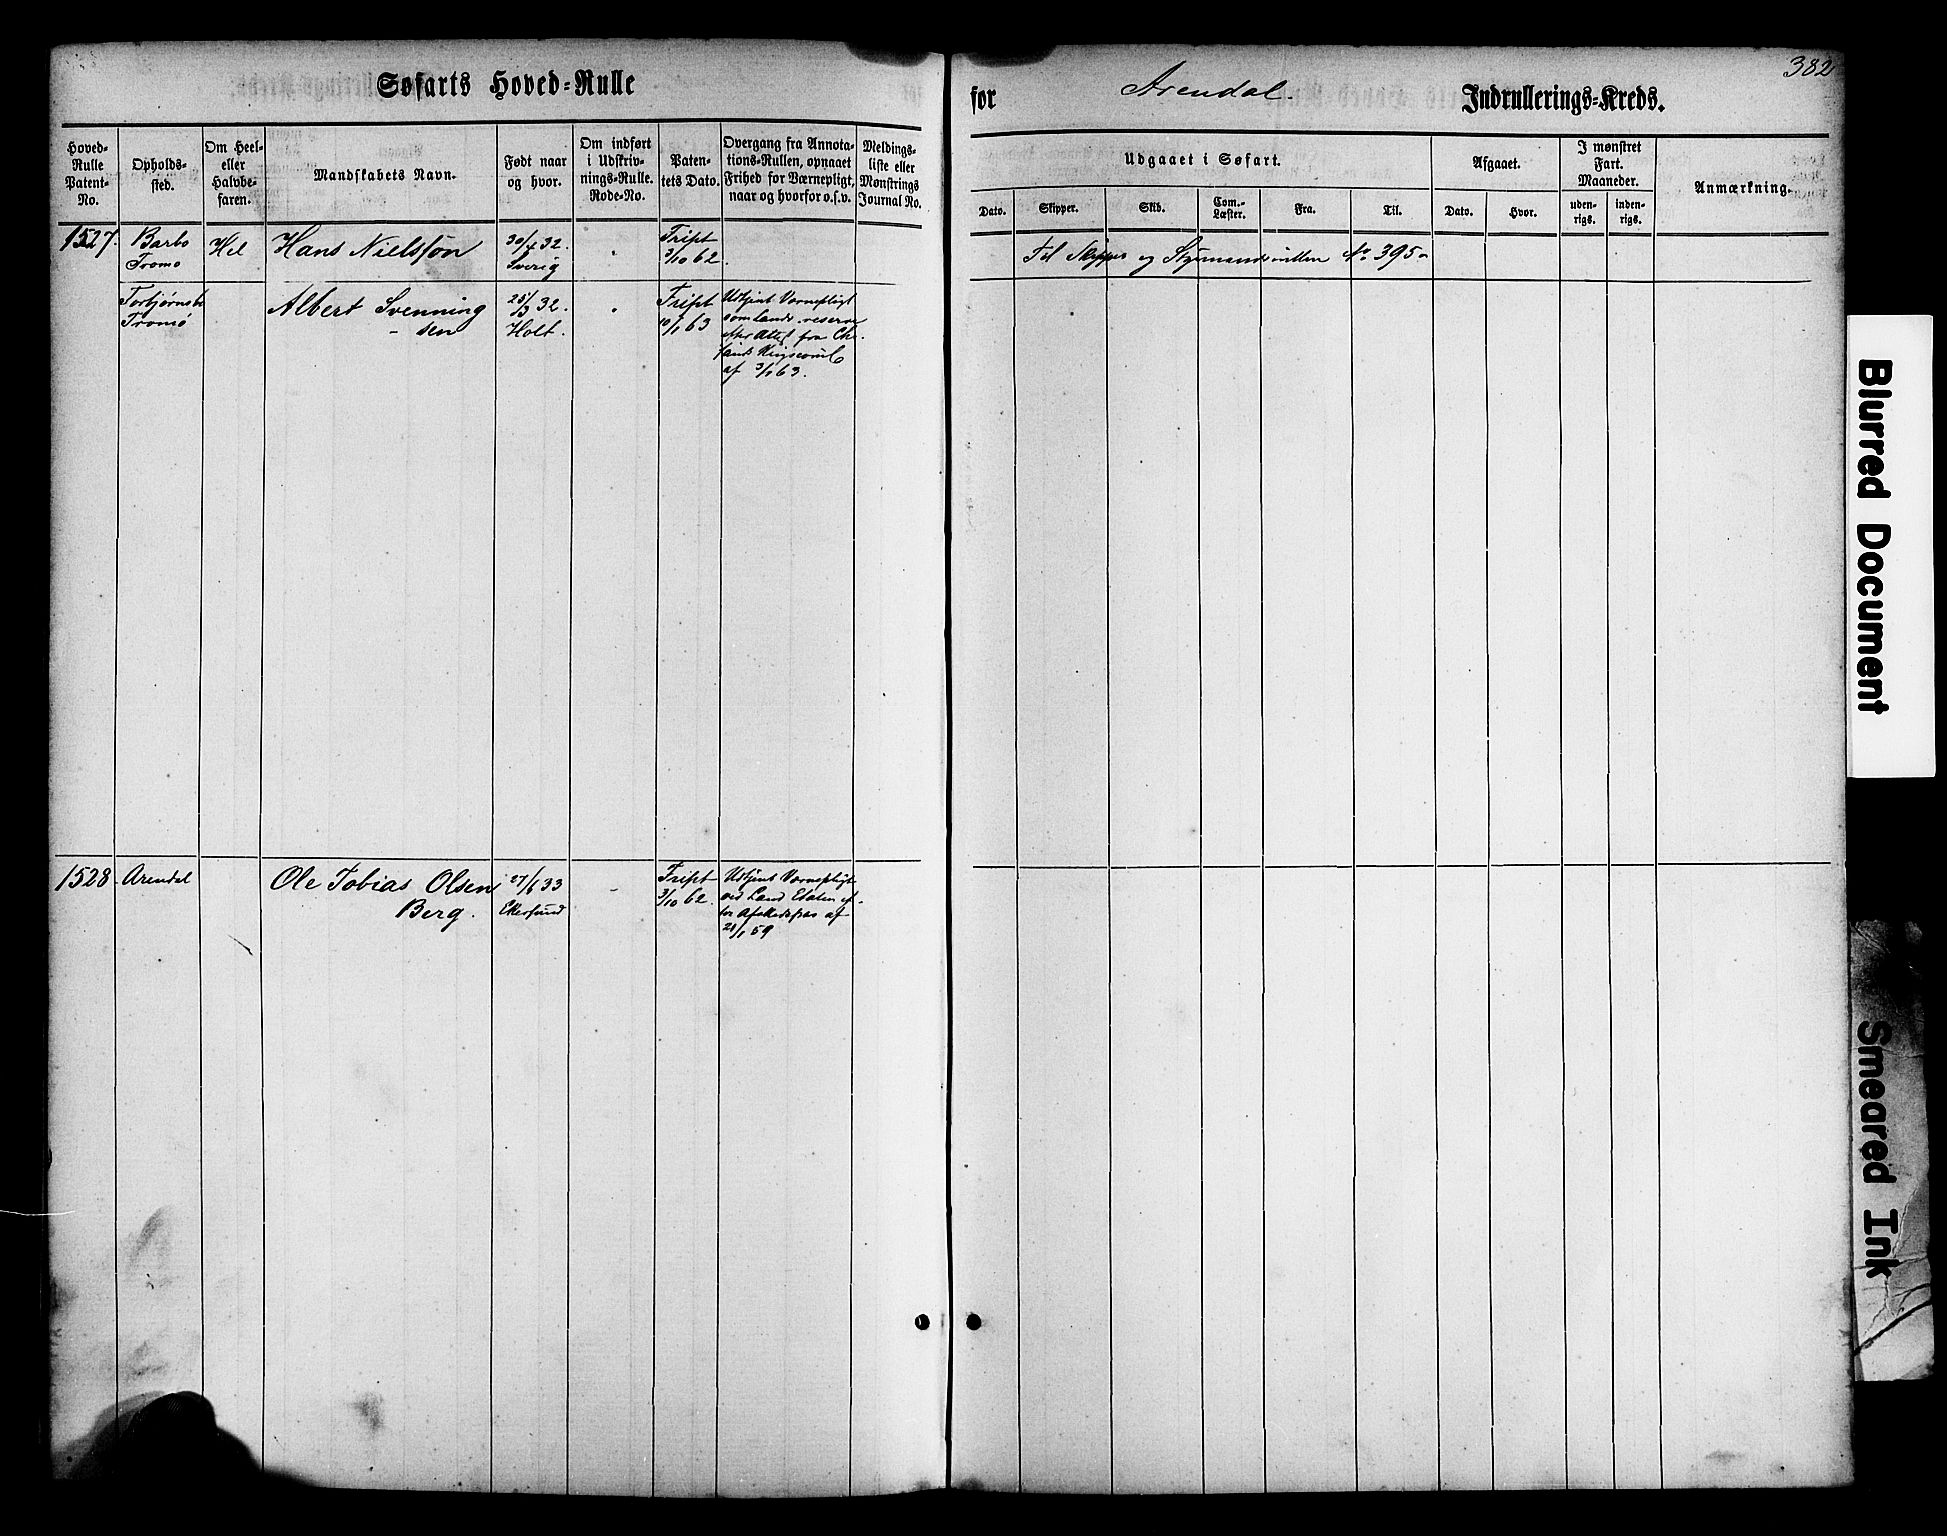 Søfarts Hoved-Rulle
for Arendal Indrullerings-Kreds.
382
Hoved-
Rulle
Patent-
No.
Opholds-
sted.
Om Heel-
eller
Halvbe-
faren.
Mandskabets Navn.
Født naar
og hvor.
Om indført
i Udskriv-
nings-Rulle.
Rode-No.
Paten-
tets Dato.
Overgang fra Annota-
tions-Rullen, opnaaet
Frihed for Værnepligt,
naar og hvorfor o.s.v.
Meldings-
liste eller
Mønstrings
Journal No.
Udgaaet i Søfart.
Dato.
Skipper.
Skib.
Com.-
Læster.
Fra.
Til.
Afgaaet.
Dato.
Hvor.
I mønstret
Fart.
Maaneder.
uden-
rigs.
inden-
rigs.
Anmærkning.
1527.
Barbo
Tromø
Hel
Hans Nielssøn
30/4 32.
Sverig
Tript
3/10 62
Til Skipper og Styrmandsrullen No. 395
Torbjørnsb
Tromø
Albert Svenning
-sen
25/3 32.
Holt.
Tript
10/1 63
Udtjent Værnepligt
som lands. reserve
fra Ch.
af 3/1 63.
1528
Arendal
Ole Tobias Olsen
Berg.
27/6 33
Ekersund
Tript
3/10 62.
Udtjent Værnepligt
ved Land Etaten ef-
ter Afskedspas af
28/1 59
Blurred Document
Smeared Ink